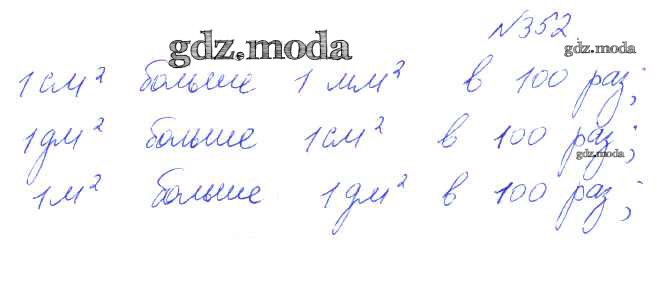 №352
gdz.moda
gdz.moda
1 см² больше 1 мм² в 100 раз;
1 дм² больше 1 см² в 100 раз;
gdz.moda
1 м² больше 1 дм² в 100 раз;